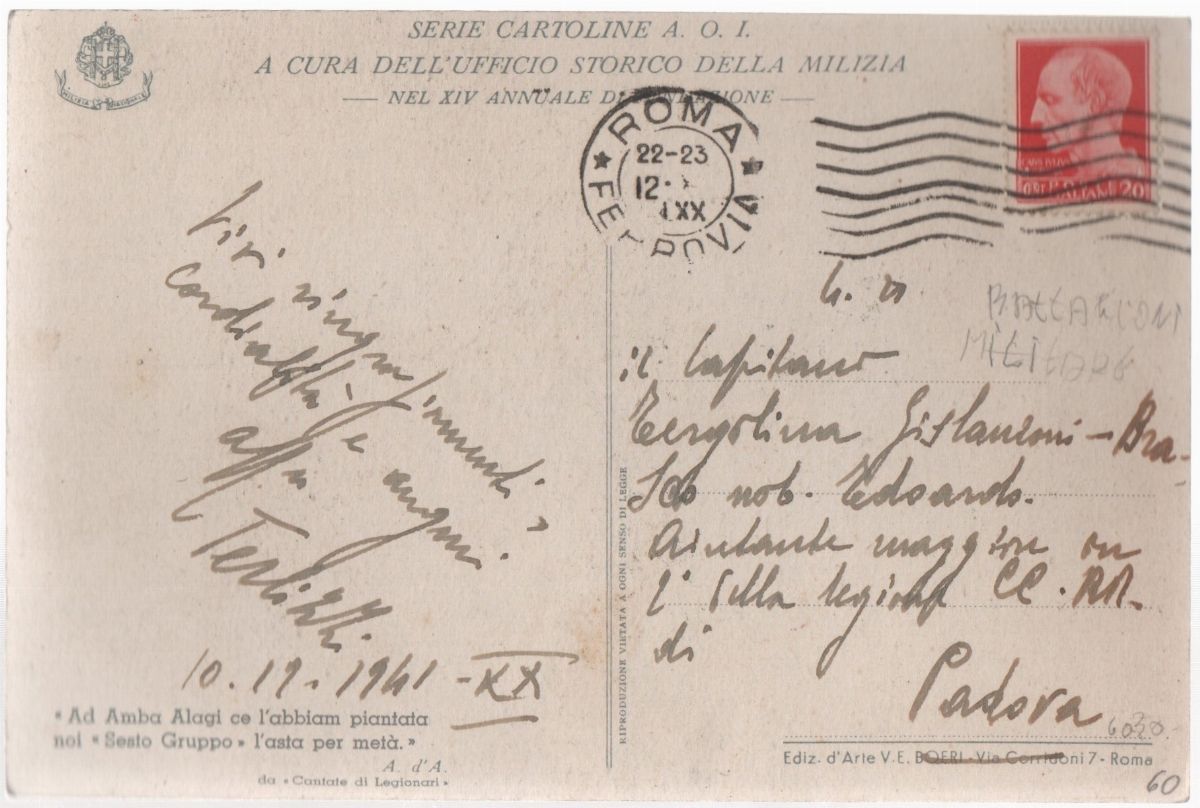 SERIE CARTOLINE A. O. I.
A CURA DELL'UFFICIO STORICO DELLA MILIZIA
NEL XIV ANNUALE DI FONDAZIONE
MILIZIA NAZIONALE
ROMA
22-23
12.
XX
FERROVIA
POSTE ITALIANE 20
Vivi ringraziamenti,
cordialità e auguri.
aff.mo
Terlizzi
10.12.1941-XX
"Ad Amba Alagi ce l'abbiam piantata
noi "Sesto Gruppo" l'asta per metà."
A. d'A.
da "Cantate di Legionari"
RIPRODUZIONE VIETATA A OGNI SENSO DI LEGGE
il Capitano
Tergolina Gislanzoni-Bra-
sco nob. Edoardo.
Aiutante maggiore in
legione CC.RR.
di
Padova
MILITARE
6030
Ediz. d'Arte V.E. BOERI - Via Corridoni 7 - Roma
60